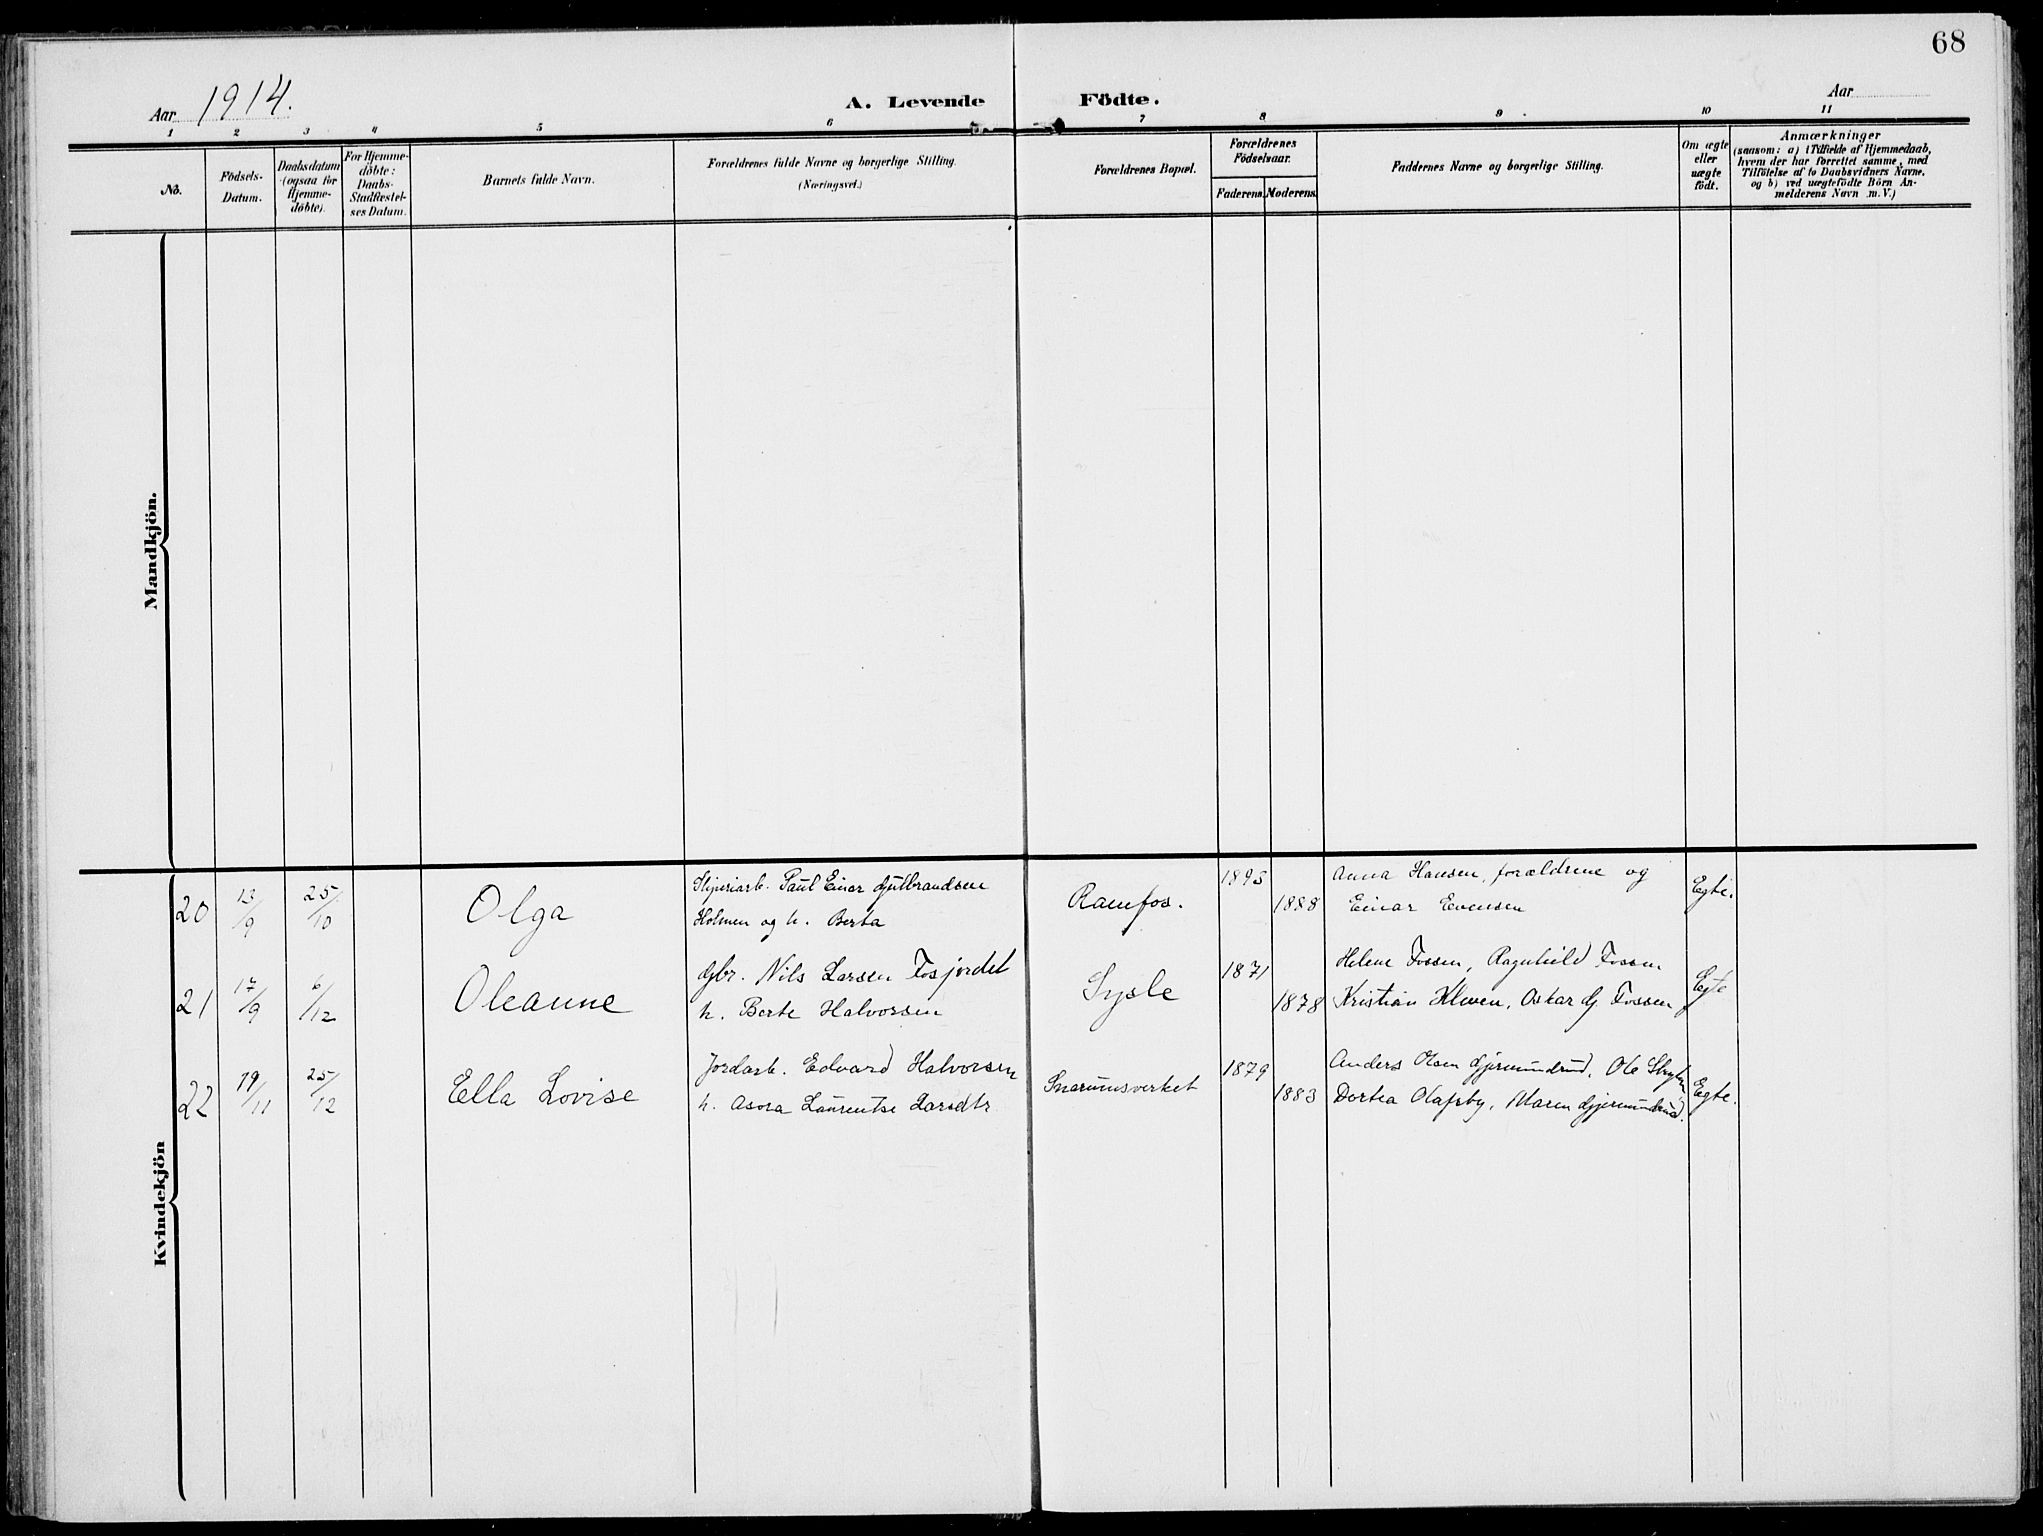 68
Aar 1914.
A. Levende Födte.
Aar
1 2 3 4 5 6 7 8 9 10 11
No.
Födsels-
Datum.
Daabsdatum
(ogsaa för
Hjemme-
döbte).
For Hjemme-
döbte:
Daabs-
Stadfæstel-
ses Datum.
Barnets fulde Navn.
Forældrenes fulde Navne og borgerlige Stilling.
(Næringsvei.)
Forældrenes Bopæl.
Forældrenes
Födselsaar.
Faderens. Moderens.
Faddernes Navne og borgerlige Stilling.
Om ægte
eller
uægte
födt.
Anmærkninger
(saasom: a) i Tilfælde af Hjemmedaab,
hvem der har forrettet samme, med
Tilföielse af to Daabsvidners Navne,
og b) ved uægtefödte Börn An-
melderens Navn m. V.)
Mandkjön.
Kvindekjön
20 13/9 25/10 Olga
Sliperiarb. Paul Einar Gulbrandsen
Holmen og h. Berta
Ramfos.
1895
1888
Anna Hansen, forældrene og
Einar Evensen
Egte.
21 17/9 6/12 Oleanne
Gbr. Nils Larsen Fosjordet
h. Berte Halvorsen
Sysle
1871
1878
Helene Fossen, Ragnhild Fossen
Kristian Kleven, Oskar G. Fossen
Egte
22 19/11 25/12 Ella Lovise
Jordarb. Edvard Halvorsen
h. Asora Laurentse Larsdtr
Snarumsverket
1879
1883
Anders Olsen Gjermundrud, Ole
Dortea Olafsby, Maren Gjermundrud.
Egte.